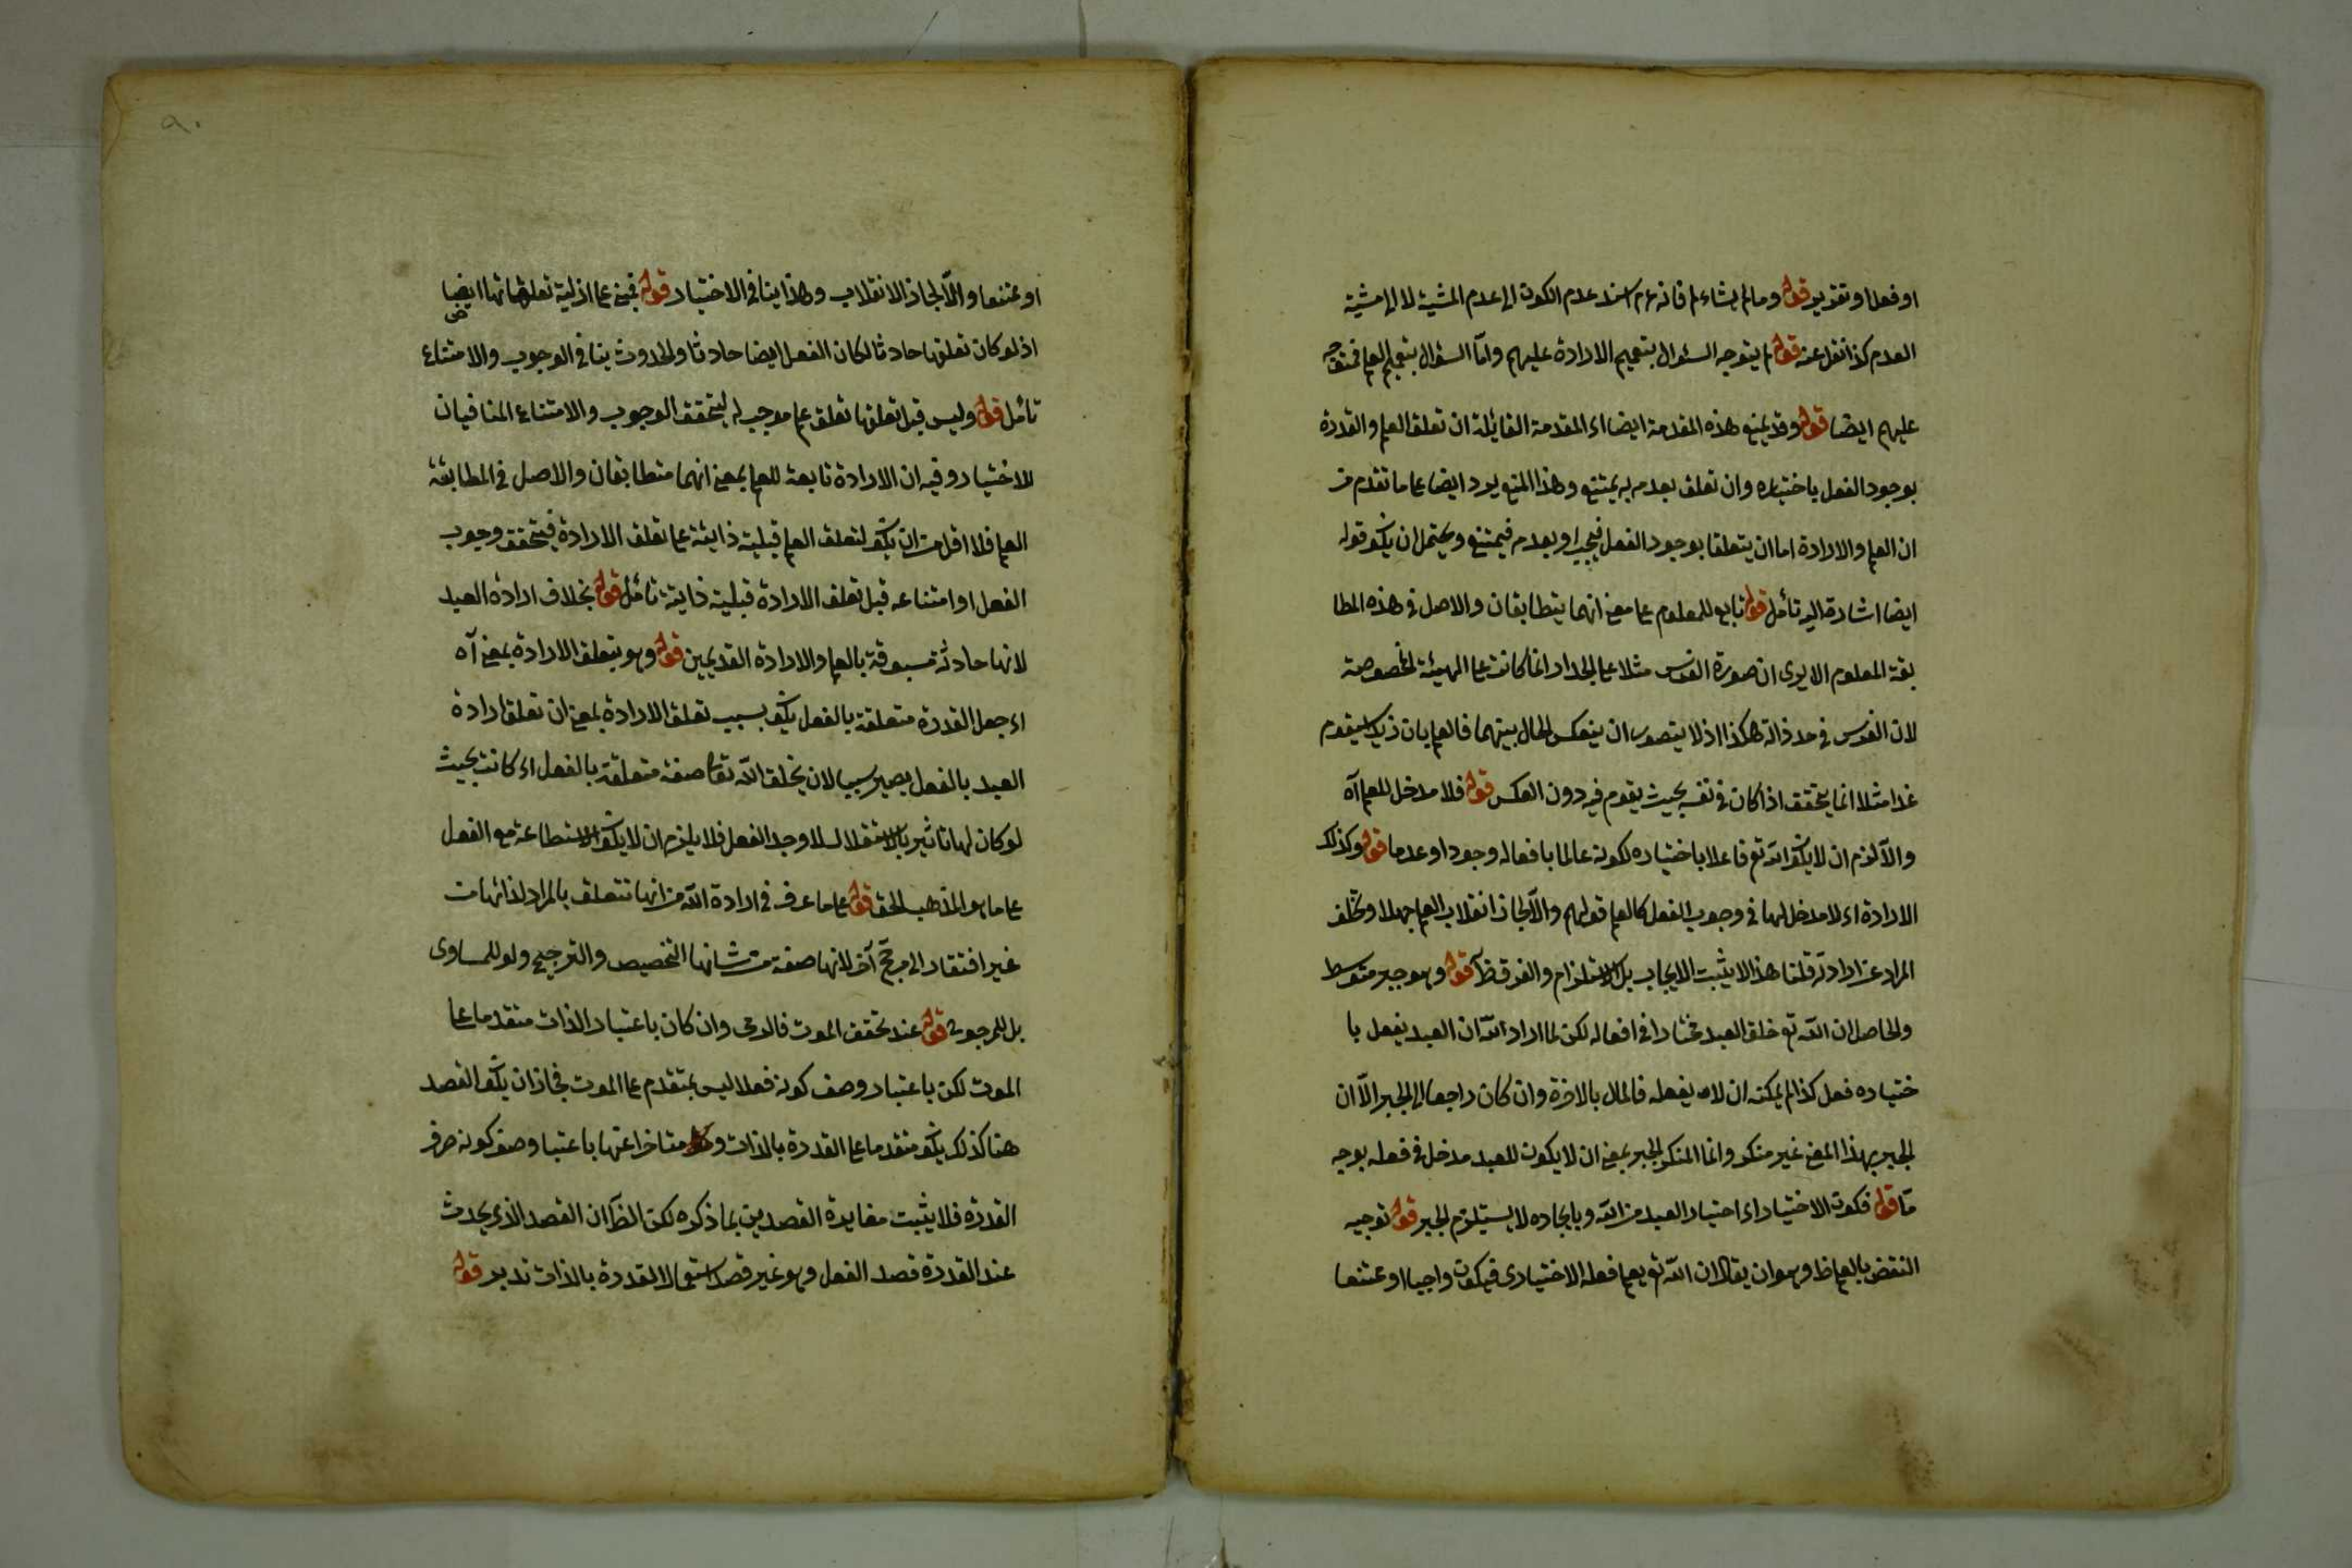 او فعلا او تقدير قوله وما لم يشاء لم فانه عم اسند عدم الكون الى عدم المشية لا الى مشية
العدم كذا نقل عنه قوله لم يتوجه السئوال بتعميم الارادة عليهم واما السئوال بتعميم العلم فمتوجه
عليهم ايضا قوله وقد يمنع هذه المقدمة ايضا اى المقدمة القائلة ان تعلق العلم والقدرة
بوجود الفعل باختياره وان تعلق بعدمه يمتنع وهذا المنع يرد ايضا على ما تقدم من
ان العلم والارادة اما ان يتعلقا بوجود الفعل فيجب او بعدمه فيمتنع ويحتمل ان يكون قوله
ايضا اشارة اليه تأمل قوله تابع للمعلوم على معنى انهما يتطابقان والاصل فى هذه المطا
بقة المعلوم الا يرى ان صورة الفرس مثلا على الجدار انما كانت على الهيئة المخصوصة
لان الفرس فى حد ذاته هكذا اذ لا يتصور ان ينعكس الحال بينهما فالعلم بان زيدا سيقوم
غدا مثلا انما يتحقق اذا كان فى نفسه بحيث يقوم فيه دون العكس قوله فلا مدخل للعلم آه
والا لزم ان لا يكون الله تع فاعلا باختياره لكونه عالما بافعاله وجودا وعدما قوله وكذلك
الارادة اى لا مدخل لها فى وجوب الفعل كالعلم قولهم والا لجاز انقلاب العلم جهلا وتخلف
المراد عن ارادته قلنا هذا لا يثبت الايجاب بل الاستلزام والفرق ظ آ قوله وهو جبر متوسط
والحاصل ان الله تع خلق العبد مختارا فى افعاله لكن لما اراد الله ان العبد يفعل با
ختياره فعل كذا لم يمكنه ان لا يفعله فالمال بالاخرة وان كان راجعا الى الجبر الا ان
الجبر بهذا المعنى غير منكر وانما المنكر الجبر بمعنى ان لا يكون للعبد مدخل فى فعله بوجه
ما قوله فكون الاختيار اى اختيار العبد من الله وبايجاده لا يستلزم الجبر قوله توجيه
النقض بالعلم ظ وهو ان يقال ان الله تع يعلم فعله الاختيارى فيكون واجبا او ممتنعا
٩٠
او ممتنعا والا لجاز الانقلاب وهذا ينافى الاختيار قوله فمبنى على ازلية تعلقاتها ايضا
اذ لو كان تعلقها حادثا لكان الفعل ايضا حادثا والحدوث ينافى الوجوب والامتناع
تأمل قوله وليس قبل تعلقها تعلق علم موجب له ليتحقق الوجوب والامتناع المنافيان
للاختيار وفيه ان الارادة تابعة للعلم بمعنى انهما متطابقان والاصل فى المطابقة
العلم فلا اقل من ان يكون لتعلق العلم قبلية ذاتية على تعلق الارادة فيتحقق وجوب
الفعل او امتناعه قبل تعلق الارادة قبلية ذاتية تأمل قوله بخلاف ارادة العبد
لانها حادثة مسبوقة بالعلم والارادة القديمين قوله وهو بتعلق الارادة بمعنى آه
اى جعل القدرة متعلقة بالفعل يكون بسبب تعلق الارادة بمعنى ان تعلق ارادة
العبد بالفعل يصير سببا لان يخلق الله تعالى صفة متعلقة بالفعل اى كانت بحيث
لو كان لها تاثير بالاستقلال لاوجد الفعل فلا يلزم ان لا يكون الاستطاعة مع الفعل
على ما هو المذهب الحق قوله على ما عرف فى ارادة الله من انها تتعلق بالمراد لذاتها من
غير افتقار الى مرجح آخر لانها صفة من شانها التخصيص والترجيح ولو للمساوى
بل المرجوح قوله عند تحقق الموت فالرمى وان كان باعتبار الذات متقدما على
الموت لكن باعتبار وصف كونه فعلا ليس بمتقدم على الموت فجاز ان يكون القصد
هنا كذلك يكون متقدما على القدرة بالذات ومتاخرا عنها باعتبار وصف كونه صرف
القدرة فلا يثبت مغايرة القصدين بما ذكره لكن الظ ان القصد الذى يحدث
عند القدرة قصد الفعل وهو غير قصد استعمال القدرة بالذات تدبر قوله